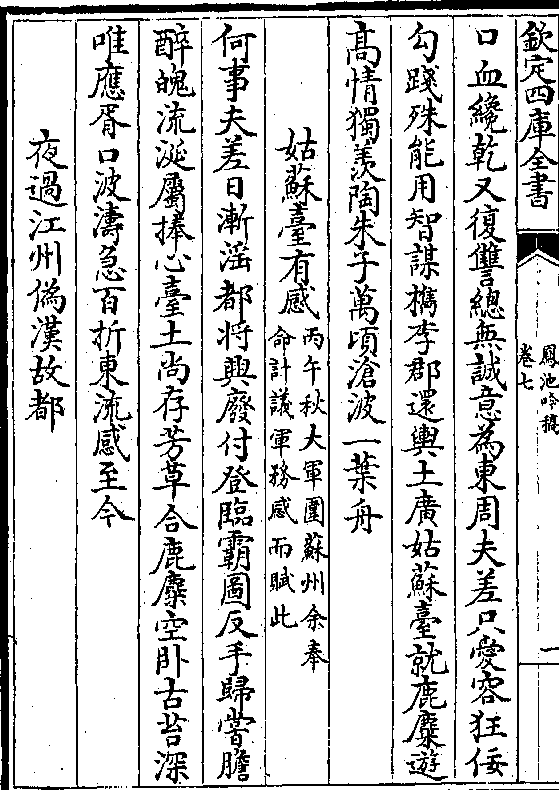 欽定四庫全書
鳳池吟稿
卷七
口血纔乾又復讐總無誠意為東周夫差只愛容狂佞
勾踐殊能用智謀檇李郡還輿土廣姑蘇臺就鹿麋遊
高情獨羨陶朱子萬頃滄波一葉舟
姑蘇臺有感丙午秋大軍圍蘇州余奉命計議軍務感而賦此
何事夫差日漸滛都将興廢付登臨霸圖反手歸嘗膽
醉魄流涎屬捧心臺土尚存芳草合鹿麋空卧古苔深
唯應胥口波濤急百折東流感至今
夜過江州偽漢故都